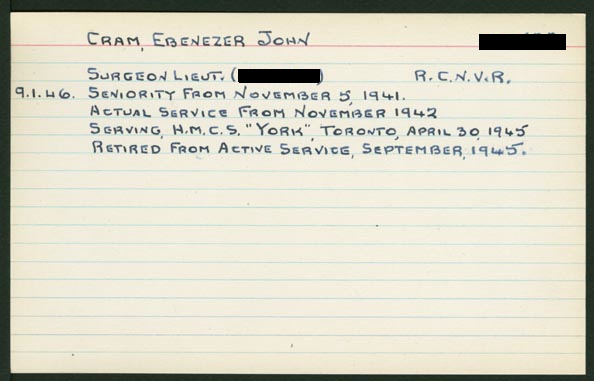 CRAM, EBENEZER JOHN
SURGEON LIEUT. ( ) R.C.N.V.R.
9.1.46. SENIORITY FROM NOVEMBER 5, 1941.
ACTUAL SERVICE FROM NOVEMBER 1942
SERVING, H.M.C.S. "YORK", TORONTO, APRIL 30, 1945
RETIRED FROM ACTIVE SERVICE, SEPTEMBER, 1945.